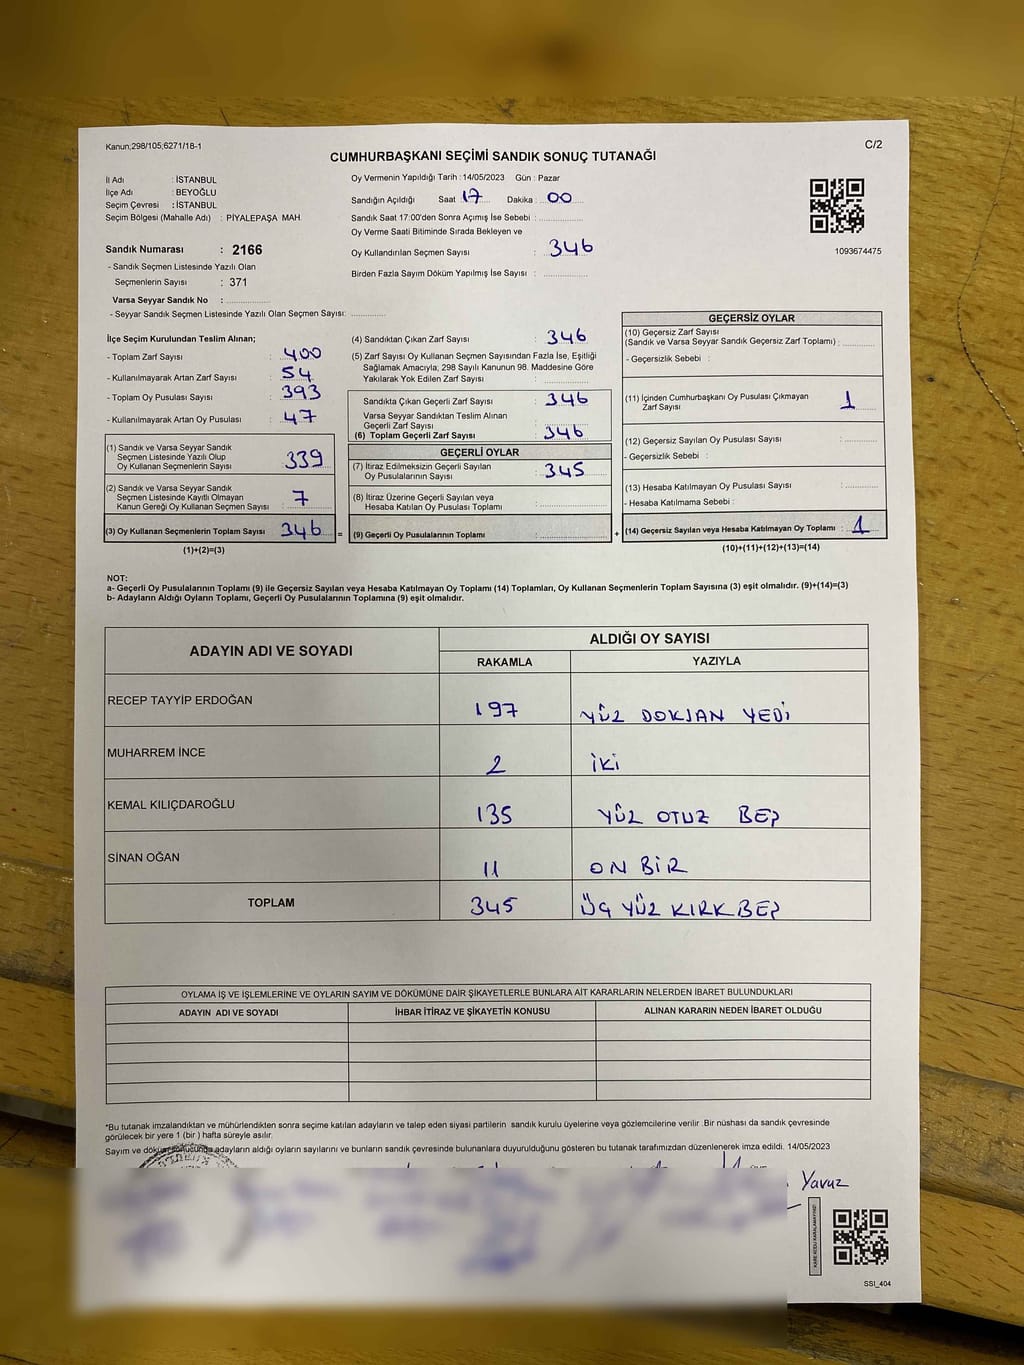 Kanun;298/105;6271/18-1
C/2
CUMHURBAŞKANI SEÇİMİ SANDIK SONUÇ TUTANAĞI
İl Adı : İSTANBUL
İlçe Adı : BEYOĞLU
Seçim Çevresi : İSTANBUL
Seçim Bölgesi (Mahalle Adı) : PİYALEPAŞA MAH.
Sandık Numarası : 2166
- Sandık Seçmen Listesinde Yazılı Olan
Seçmenlerin Sayısı : 371
Varsa Seyyar Sandık No :
- Seyyar Sandık Seçmen Listesinde Yazılı Olan Seçmen Sayısı:
Oy Vermenin Yapıldığı Tarih : 14/05/2023 Gün : Pazar
Sandığın Açıldığı Saat : 17 Dakika : 00
Sandık Saat 17:00'den Sonra Açımış İse Sebebi :
Oy Verme Saati Bitiminde Sırada Bekleyen ve
Oy Kullandırılan Seçmen Sayısı : 346
Birden Fazla Sayım Döküm Yapılmış İse Sayısı :
1093674475
İlçe Seçim Kurulundan Teslim Alınan;
- Toplam Zarf Sayısı : 400
- Kullanılmayarak Artan Zarf Sayısı : 54
- Toplam Oy Pusulası Sayısı : 393
- Kullanılmayarak Artan Oy Pusulası : 47
(1) Sandık ve Varsa Seyyar Sandık
Seçmen Listesinde Yazılı Olup
Oy Kullanan Seçmenlerin Sayısı : 339
(2) Sandık ve Varsa Seyyar Sandık
Seçmen Listesinde Kayıtlı Olmayan
Kanun Gereği Oy Kullanan Seçmen Sayısı : 7
(3) Oy Kullanan Seçmenlerin Toplam Sayısı : 346 =
(1)+(2)=(3)
(4) Sandıktan Çıkan Zarf Sayısı : 346
(5) Zarf Sayısı Oy Kullanan Seçmen Sayısından Fazla İse, Eşitliği
Sağlamak Amacıyla, 298 Sayılı Kanunun 98. Maddesine Göre
Yakılarak Yok Edilen Zarf Sayısı :
Sandıkta Çıkan Geçerli Zarf Sayısı : 346
Varsa Seyyar Sandıktan Teslim Alınan
Geçerli Zarf Sayısı :
(6) Toplam Geçerli Zarf Sayısı : 346
GEÇERLİ OYLAR
(7) İtiraz Edilmeksizin Geçerli Sayılan
Oy Pusulalarının Sayısı : 345
(8) İtiraz Üzerine Geçerli Sayılan veya
Hesaba Katılan Oy Pusulası Toplamı :
(9) Geçerli Oy Pusulalarının Toplamı : +
GEÇERSİZ OYLAR
(10) Geçersiz Zarf Sayısı
(Sandık ve Varsa Seyyar Sandık Geçersiz Zarf Toplamı) :
- Geçersizlik Sebebi :
(11) İçinden Cumhurbaşkanı Oy Pusulası Çıkmayan
Zarf Sayısı : 1
(12) Geçersiz Sayılan Oy Pusulası Sayısı :
- Geçersizlik Sebebi :
(13) Hesaba Katılmayan Oy Pusulası Sayısı :
- Hesaba Katılmama Sebebi :
(14) Geçersiz Sayılan veya Hesaba Katılmayan Oy Toplamı : 1
(10)+(11)+(12)+(13)=(14)
NOT:
a- Geçerli Oy Pusulalarının Toplamı (9) ile Geçersiz Sayılan veya Hesaba Katılmayan Oy Toplamı (14) Toplamları, Oy Kullanan Seçmenlerin Toplam Sayısına (3) eşit olmalıdır. (9)+(14)=(3)
b- Adayların Aldığı Oyların Toplamı, Geçerli Oy Pusulalarının Toplamına (9) eşit olmalıdır.
ADAYIN ADI VE SOYADI ALDIĞI OY SAYISI
RAKAMLA YAZIYLA
RECEP TAYYİP ERDOĞAN 197 YÜZ DOKSAN YEDİ
MUHARREM İNCE 2 İKİ
KEMAL KILIÇDAROĞLU 135 YÜZ OTUZ BEŞ
SİNAN OĞAN 11 ON BİR
TOPLAM 345 ÜÇ YÜZ KIRK BEŞ
OYLAMA İŞ VE İŞLEMLERİNE VE OYLARIN SAYIM VE DÖKÜMÜNE DAİR ŞİKAYETLERLE BUNLARA AİT KARARLARIN NELERDEN İBARET BULUNDUKLARI
ADAYIN ADI VE SOYADI İHBAR İTİRAZ VE ŞİKAYETİN KONUSU ALINAN KARARIN NEDEN İBARET OLDUĞU
*Bu tutanak imzalandıktan ve mühürlendikten sonra seçime katılan adayların ve talep eden siyasi partilerin sandık kurulu üyelerine veya gözlemcilerine verilir .Bir nüshası da sandık çevresinde
görülecek bir yere 1 (bir ) hafta süreyle asılır.
Sayım ve döküm sonucunda adayların aldığı oyların sayılarını ve bunların sandık çevresinde bulunanlara duyurulduğunu gösteren bu tutanak tarafımızdan düzenlenerek imza edildi. 14/05/2023
Yavuz
KARE KODU KARALAMAYINIZ!
SSI_404